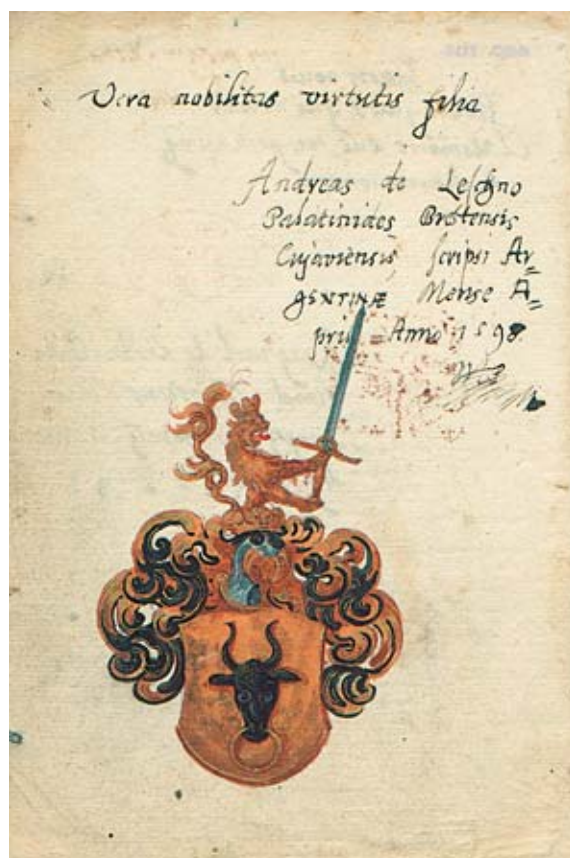 Vera nobilitas virtutis filia
Andreas de Leschno
Palatinides Brestensis
Cujaviensis scripsi Ar=
gentinæ Mense A=
pril Anno 1598